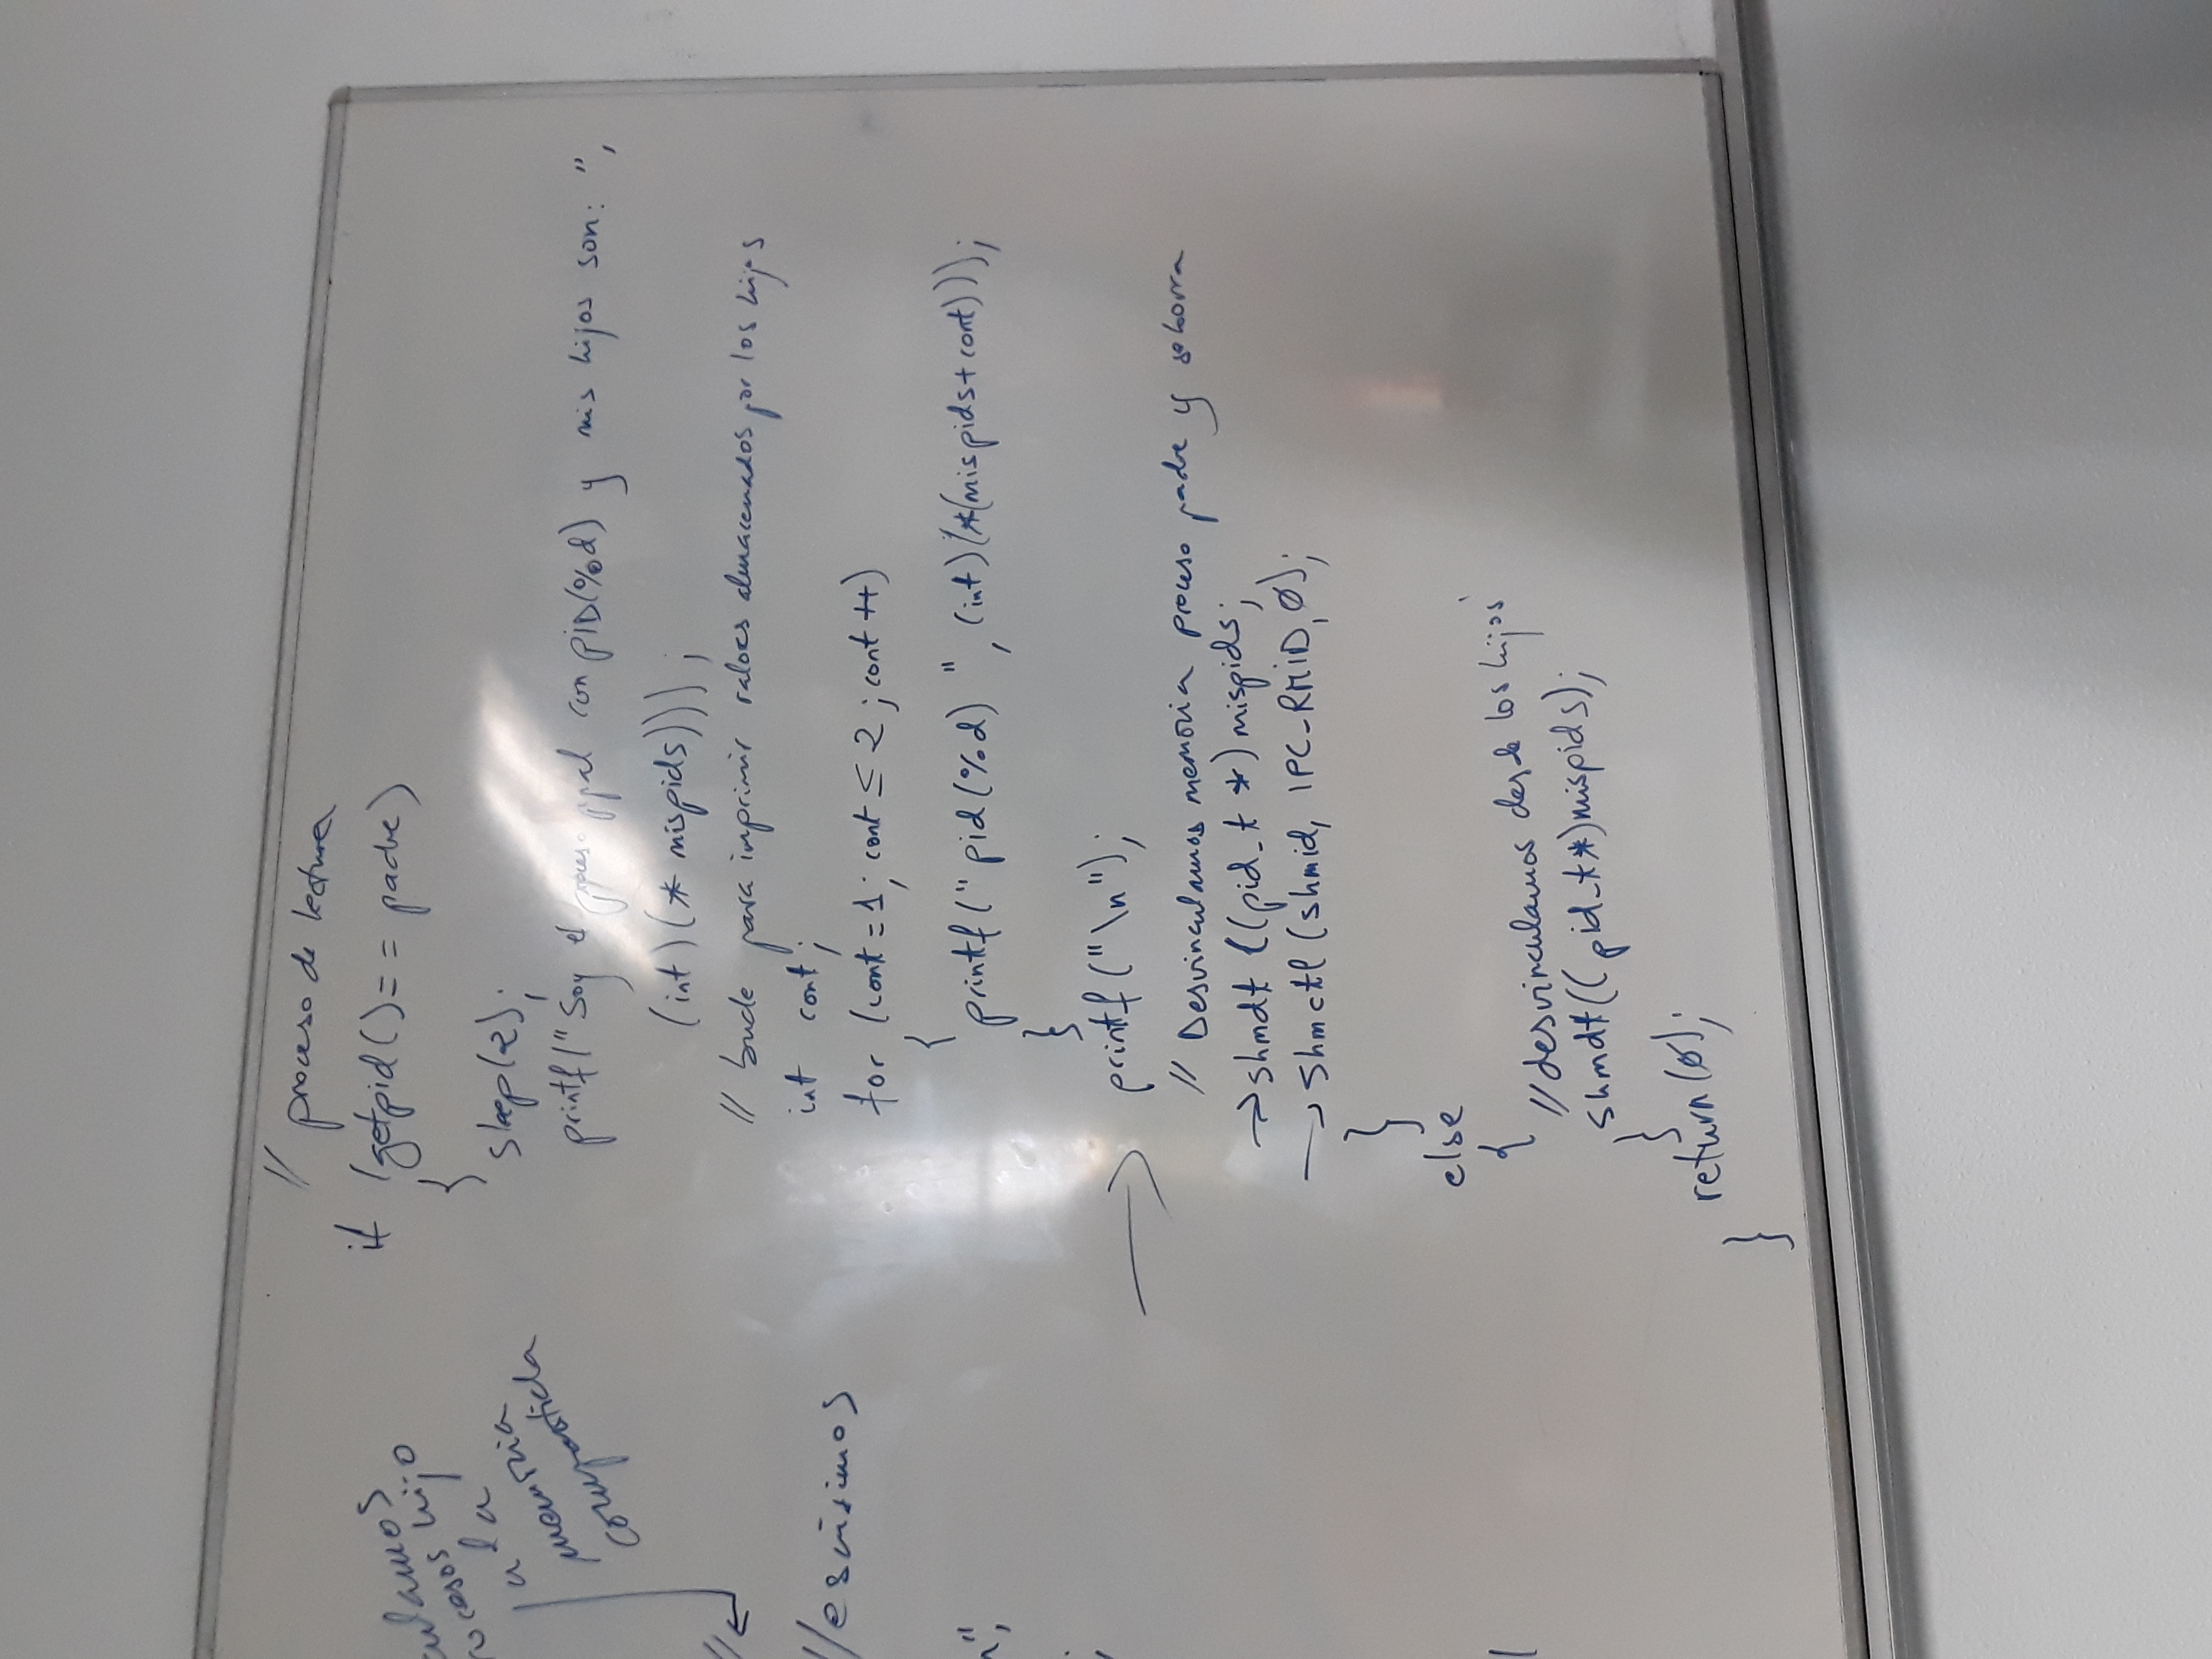 culamos
rocesos hijo
a la
memoria
compartida
//
//escrisimos
n",
;
// proceso de lectura
if (getpid()== padre)
{
sleep(2);
printf("Soy el proceso ppal con PiD(%d) y mis hijos son: ",
(int)(* mispids)));
// bucle para imprimir valores almacenados por los hijos
int cont;
for (cont=1; cont ≤ 2; cont++)
{
printf(" pid(%d) ", (int)(*(mispids+cont)));
}
printf("\n");
// Desvinculamos memoria proceso padre y se borra
→ shmdt ((pid_t *) mispids;
→ Shmctl (shmid, IPC_RMiD, 0);
}
else
{
//desvinculamos desde los hijos
shmdt((pid_t*)mispids);
}
return(0);
}